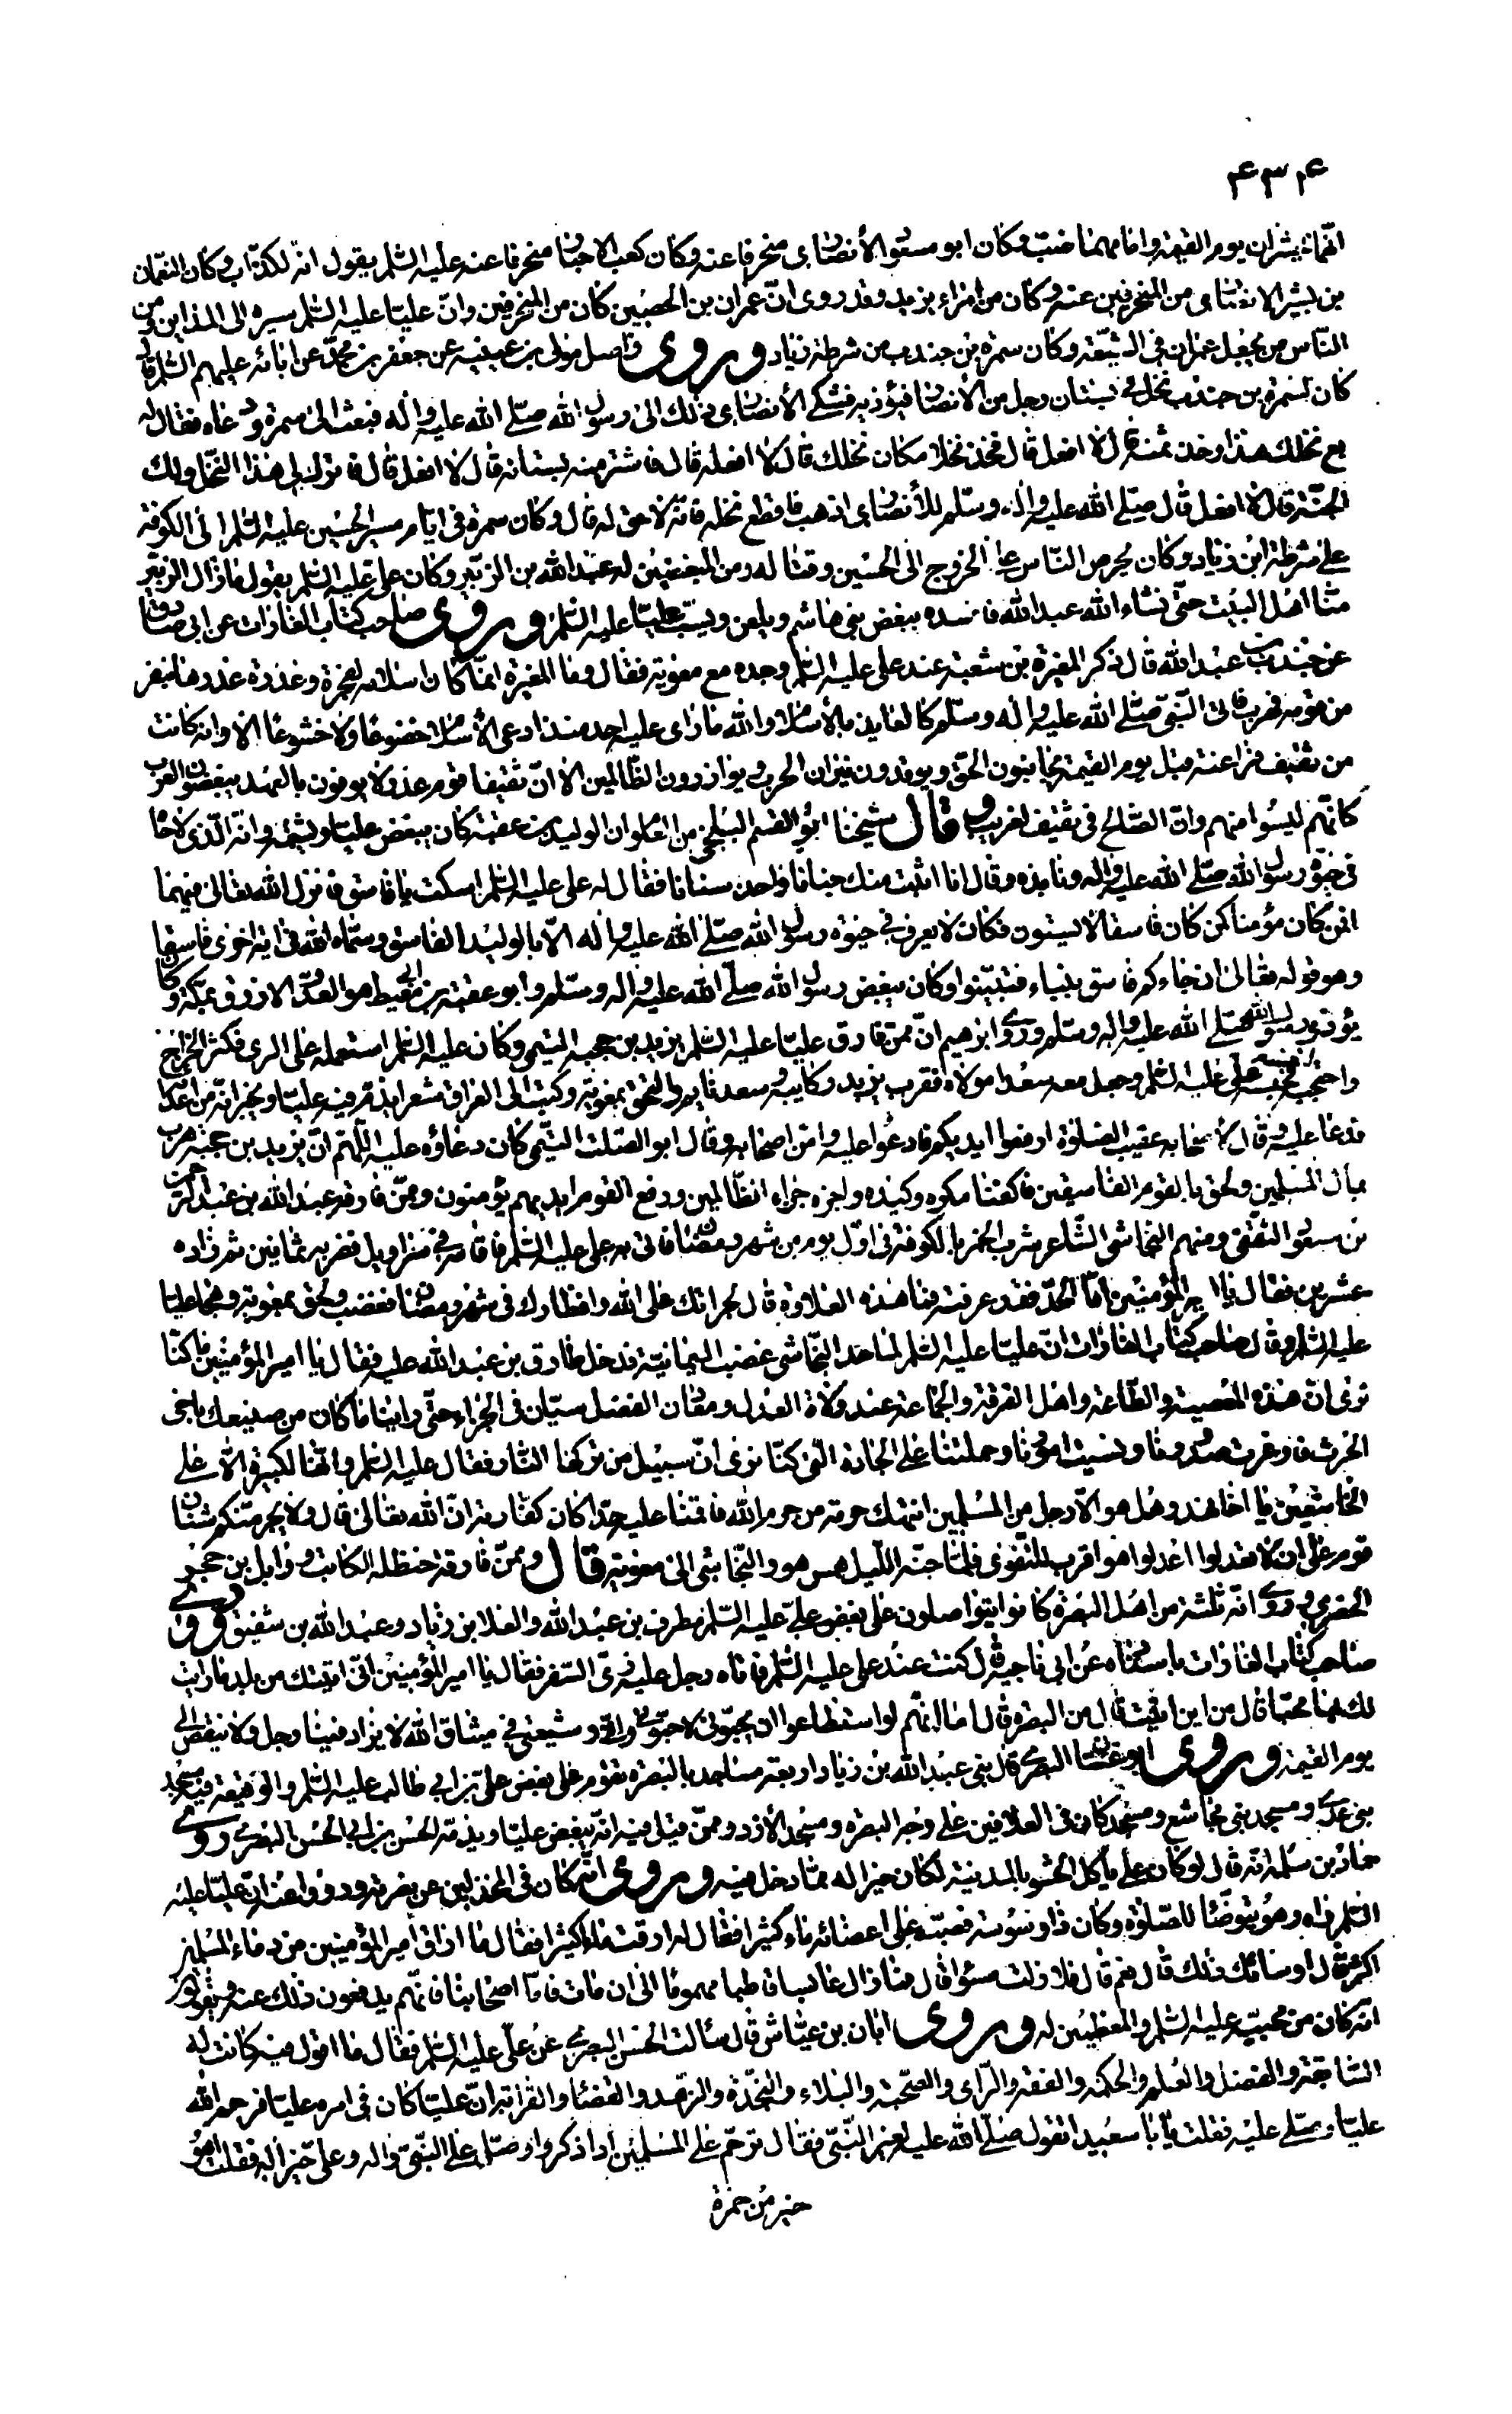 ۴۳۴
انّهما يحشران يوم القيمة وامامهما ضبّ وكان ابو مسعود الأنصارى منحرفا عنه وكان كعب الاحبار منحرفا عنه عليه السّلم يقول انه لكذّاب وكان النعمان
بن بشير الانصارى من المنحرفين عنه وكان من امراء يزيد وقد روى انّ عمران بن الحصين كان من المنحرفين وانّ عليّا عليه السّلم سيره الى المداين ومن
النّاس من يجعل عمران فى الشيّعة وكان سمرة بن جندب من شرطة زياد وروى واصل مولى بن عيينه عن جعفر بن محمّد عن ابائه عليهم السّلم قال
كان لسمرة بن جندب نخل فى بستان رجل من الأنصار فيؤذيه فشكى الأنصارى ذلك الى رسول الله صلّى الله عليه واله فبعث الى سمرة ودعاه فقال له
بع نخلك هذا وخذ ثمنه قال لا افعل قال فخذ نخلا مكان نخلك قال لا افعل قال فاشتر منه بستانه قال لا افعل قال فاترك لى هذا النّخل ولك
الجنّة قال لا افعل قال صلّى الله عليه واله وسلّم للأنصارى اذهب فاقطع نخله فانّه لا حق له قال وكان سمرة فى ايّام مسير الحسين عليه السّلم الى الكوفة
على شرطة ابن زياد وكان يحرص النّاس على الخروج الى الحسين وقتاله ومن المبغضين له عبد الله بن الزبير وكان على عليه السّلم يقول مازال الزبير
منّا اهل البيت حتّى نشاء الله عبد الله فافسده يبغض بنى هاشم ويلعن ويسبّ عليّا عليه السّلم وروى صاحب كتاب الغارات عن ابى صادق
عن جندب بن عبد الله قال ذكر المغيرة بن شعبة عند على عليه السّلم وجده مع معوية فقال وما المغيرة انّما كان اسلامه لفجرة وغدرة غدرها بنفر
من قومه فهرب فاتى النّبى صلّى الله عليه واله وسلّم كالعايذ بالأسلام والله ما راى عليه احد منذ ادعى الأسلام خضوعا ولا خشوعا الا وانه كانت
من ثقيف فراعنة قبل يوم القيمة يجانبون الحقّ ويوقدون نيران الحرب ويوازرون الظّالمين الا انّ ثقيفا قوم غدر لا يوفون بالعهد يبغضون العرب
كانّهم ليسوا منهم وانّ الصّالح فى ثقيف لغريب وقال شيخنا ابو القسم البلخى من المعلوم ان الوليد بن عقبة كان يبغض عليّا ويشتمه وانّه الّذى لاحا
فى حيوة رسول الله صلّى الله عليه واله ونابذه وقال انا اثبت منك جنانا واحد سنانا فقال له على عليه السّلم اسكت يا فاسق فانزل الله تعالى فيهما
افمن كان مؤمنا كمن كان فاسقا لا يستوون فكان لا يعرف فى حيوة رسول الله صلّى الله عليه واله الّا بالوليد الفاسق وسمّاه الله فى اية اخرى فاسقا
وهو قوله تعالى ان جاءكم فاسق بنباء فتبيّنوا وكان يبغض رسول الله صلّى الله عليه واله وسلّم وابو عقبة بن ابى معيط هو العدّو الازرق بمكّة وكان
يؤذى رسول الله صلّى الله عليه واله وسلّم وروى ابرهيم انّ ممّن فارق عليّا عليه السّلم يزيد بن حجية التيمى وكان عليه السّلم استعمله على الرى فكثر الخراج
واحتجبه فحبسه على عليه السّلم وجعل معه سعدا مولاه فقرب يزيد ركايبه وسعد نايم والتحق بمعوية وكتب الى العراق شعرا يذم فيه عليّا ويخبر انّه من اعداه
فدعا عليه وقال لأصحابه عقيب الصّلوة ارفعوا ايديكم فادعوا عليه وامّن اصحابه وقال ابو الصّلت التّيمى كان دعاؤه عليه اللّهمّ انّ يزيد بن حجية هرب
بمال المسلمين ولحق بالقوم الفاسقين فاكفنا مكره وكيده واجزه جزاء الظّالمين ورفع القوم ايديهم يؤمنون وممّن فارقه عبد الله بن عبد الرّحمن
بن مسعود الثقفى ومنهم النجاشى الشّاعر شرب الخمر بالكوفة فى اوّل يوم من شهر رمضان فاتى به على عليه السّلم فاقامه فى سراويل فضربه ثمانين ثم زاده
عشرين فقال يا امير المؤمنين امّا الحدّ فقد عرفته فما هذه العلاوة قال لجراتك على الله وافطارك فى شهر رمضان فغضب ولحق بمعوية وهجا عليّا
عليه السّلم وقال صاحب كتاب الغارات انّ عليّا عليه السّلم لمّا حد النّجاشى غضب اليمانيّة فدخل طارق بن عبد الله عليه فقال يا امير المؤمنين ما كنّا
نرى انّ هذه المعصية والطّاعة واهل الفرقة والجماعة عند ولاة العدل ومعادن الفضل سيّان فى الجزاء حتّى راينا ما كان من صنيعك باخى
الحرث فاوغرت صدورنا وشتّت امورنا وحملتنا على الجادة الّتى كنّا نرى انّ سبيل من تركها النّار فقال عليه السّلم وانّها لكبيرة الّا على
الخاشعين يا اخا نهد وهل هو الّا رجل من المسلمين انتهك حرمة من حرم الله فاقمنا عليه حدّا كان كفّارته انّ الله تعالى قال ولا يجرمنّكم شنان
قوم على ان لا تعدلوا اعدلوا هو اقرب للتقوى فلمّا جنّه اللّيل همس هو والنّجاشى الى معوية قال وممّن فارقه حنظله الكاتب ووايل بن حجر
الحضرمى وروى انّه ثلثة من اهل البصرة كانوا يتواصلون على بغض علىّ عليه السّلم مطرف بن عبد الله والعلا بن زياد وعبد الله بن شقيق وروى
صاحب كتاب الغارات باسناده عن ابى فاجيه قال كنت عند على عليه السّلم فاتاه رجل عليه زىّ السّفر فقال يا امير المؤمنين انّى اتيتك من بلد ما رايت
لك بها محبّا قال من اين اتيت قال من البصرة قال اما انّهم لو استطاعوا ان يحبّونى لاحبّونى وانّى وشيعتى فى ميثاق الله لا يزاد فينا رجل ولا ينقص الى
يوم القيمة وروى ابو غسّان البصرى قال بنى عبد الله بن زياد اربعة مساجد بالبصرة تقوم على بغض على بن ابى طالب عليه السّلم والوقيعة فيه مسجد
بنى عدى ومسجد بنى مجاشع ومسجد كان فى العلافين على وجر البصره ومسجد الأزد وممّن قيل فيه انّه يبغض عليّا ويذمّه الحسن بن ابى الحسن البصرى روى
حماد بن سلمه انّه قال لو كان على يأكل الحشو بالمدينة لكان خيرا له ممّا دخل فيه وروى انّه كان فى المخذلين عن نصرته ورووا عنه انّ عليّا عليه
السّلم راه وهو يتوضّئا للصّلوة وكان ذا وسوسة فصبّ على اعضائه ماء كثيرا فقال له ارقت ماء كثيرا فقال ما اراق امير المؤمنين من دماء المسلمين
اكثر قال اوساءك ذلك قال نعم قال فلا زلت مسؤا قال فمازال عابسا قاطبا مهموما الى ان مات فامّا اصحابنا فانّهم يدفعون ذلك عنه ويقولون
انّه كان من محبيّه عليه السّلم والمعظّمين له وروى ابان بن عيّاش قال سالت الحسن البصرى عن علىّ عليه السّلم فقال ما اقول فيه كانت له
السّابقة والفضل والعلم والحكمه والفقه والرّاى والصّحبة والبلاء والنّجدة والزّهد والقضاء والقرابة انّ عليّا كان فى امره عليّا فرحم الله
عليّا وصلّى عليه فقلت يا ابا سعيد اتقول صلّى الله عليه لغير النّبىّ فقال ترحّم على المسلمين اذا ذكروا وصلّ على النّبىّ واله وعلى خير اله فقلت اهو
خير من حمزة